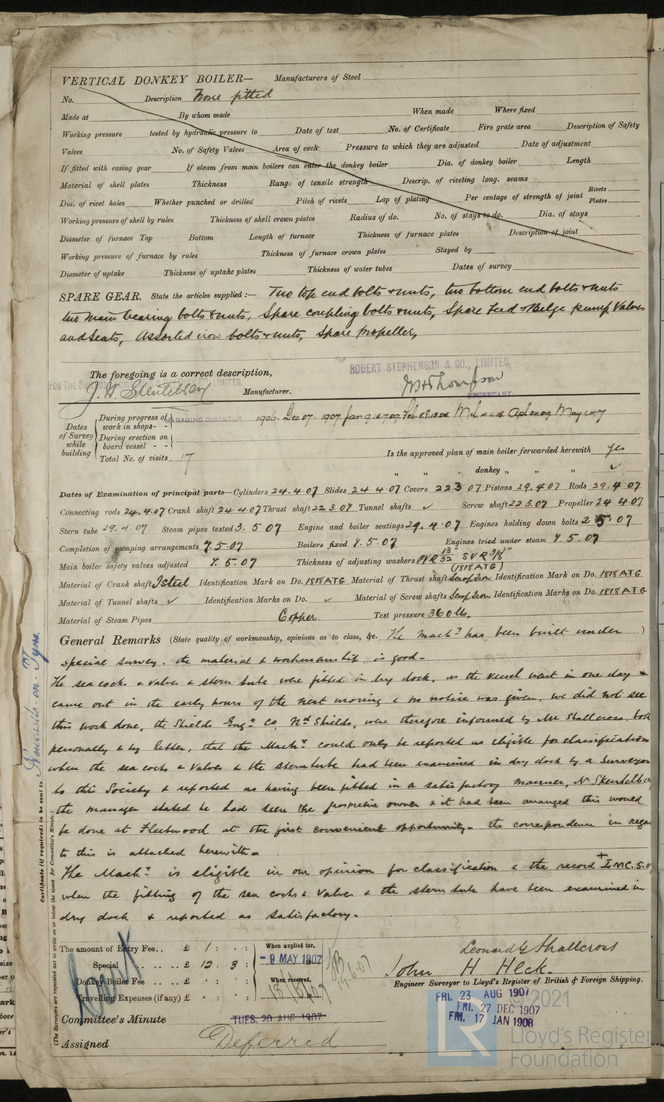 VERTICAL DONKEY BOILER— Manufacturers of Steel
No. Description None fitted
Made at By whom made When made Where fixed
Working pressure tested by hydraulic pressure to Date of test No. of Certificate Fire grate area Description of Safety
Valves No. of Safety Valves Area of each Pressure to which they are adjusted Date of adjustment
If fitted with casing gear If steam from main boilers can enter the donkey boiler Dia. of donkey boiler Length
Material of shell plates Thickness Range of tensile strength Descrip. of riveting long. seams
Dia. of rivet holes Whether punched or drilled Pitch of rivets Lap of plating Per centage of strength of joint Rivets Plates
Working pressure of shell by rules Thickness of shell crown plates Radius of do. No. of stays to do. Dia. of stays
Diameter of furnace Top Bottom Length of furnace Thickness of furnace plates Description of joint
Working pressure of furnace by rules Thickness of furnace crown plates Stayed by
Diameter of uptake Thickness of uptake plates Thickness of water tubes Dates of survey
SPARE GEAR. State the articles supplied:— Two top end bolts & nuts, two bottom end bolts & nuts
two main bearing bolts & nuts, Spare coupling bolts & nuts, Spare Feed & Bilge pump Valves
and seats, Assorted iron bolts & nuts, Spare propeller,
The foregoing is a correct description,
ROBERT STEPHENSON & CO., LIMITED
Manufacturer. SECRETARY
MANAGING DIRECTOR
Dates of Survey while building
During progress of work in shops - - 1906. Dec 07. 1907 Jan 9.
During erection on board vessel - - -
Total No. of visits 17 Is the approved plan of main boiler forwarded herewith Yes
" " donkey " " "
Dates of Examination of principal parts—Cylinders 24.4.07 Slides 24.4.07 Covers 22.3.07 Pistons 29.4.07 Rods 29.4.07
Connecting rods 24.4.07 Crank shaft 24.4.07 Thrust shaft 22.3.07 Tunnel shafts ✓ Screw shaft 22.3.07 Propeller 24.4.07
Stern tube 29.4.07 Steam pipes tested 3.5.07 Engine and boiler seatings 29.4.07 Engines holding down bolts 2.5.07
Completion of pumping arrangements 7.5.07 Boilers fixed 7.5.07 Engines tried under steam 7.5.07
Main boiler safety valves adjusted 7.5.07 Thickness of adjusting washers PVR 13/32 SVR 3/8
(1818 ATG)
Material of Crank shaft I steel Identification Mark on Do. 1818 ATG Material of Thrust shaft Scrap Iron Identification Mark on Do. 1818 ATG
Material of Tunnel shafts ✓ Identification Marks on Do. ✓ Material of Screw shafts Scrap Iron Identification Marks on Do. 1818 ATG
Material of Steam Pipes Copper Test pressure 360 lbs.
General Remarks (State quality of workmanship, opinions as to class, &c. The Machy has been built under
special survey. the material & workmanship is good.
The sea cocks & valves & stern tube were fitted in dry dock, as the vessel went in one day &
came out in the early hours of the next morning & no notice was given, we did not see
this work done, the Shields Engg. Co, Nth Shields, were therefore informed by Mr Shallcross, both
personally & by letter, that the Machy. could only be reported as eligible for classification
when the sea cocks & valves & the stern tube had been examined in dry dock by a Surveyor
to this Society & reported as having been fitted in a satisfactory manner,
the manager stated he had seen the prospective owner & it had been arranged this would
be done at Fleetwood at the first convenient opportunity. the correspondence in regard
to this is attached herewith.
The Machy. is eligible in our opinion for classification & the record + LMC. 5.07
when the fitting of the sea cocks & valves & the stern tube have been examined in
dry dock & reported as satisfactory.
Newcastle-on-Tyne
Certificate (if required) to be sent to
(The Surveyors are requested not to write on or below the space for Committee's Minute.)
The amount of Entry Fee.. £ 1 : : When applied for,
Special £ 12 : 3 : - 9 MAY 1907
Donkey Boiler Fee £ : : When received,
Travelling Expenses (if any) £ : :
Leonard G Shallcross
John H. Heck.
Engineer Surveyor to Lloyd's Register of British & Foreign Shipping.
Committee's Minute TUES. 20 AUG 1907
FRI. 23 AUG 1907
FRI. 27 DEC 1907
FRI. 17 JAN 1908
Assigned Deferred
2021
LR
Lloyd's Register
Foundation